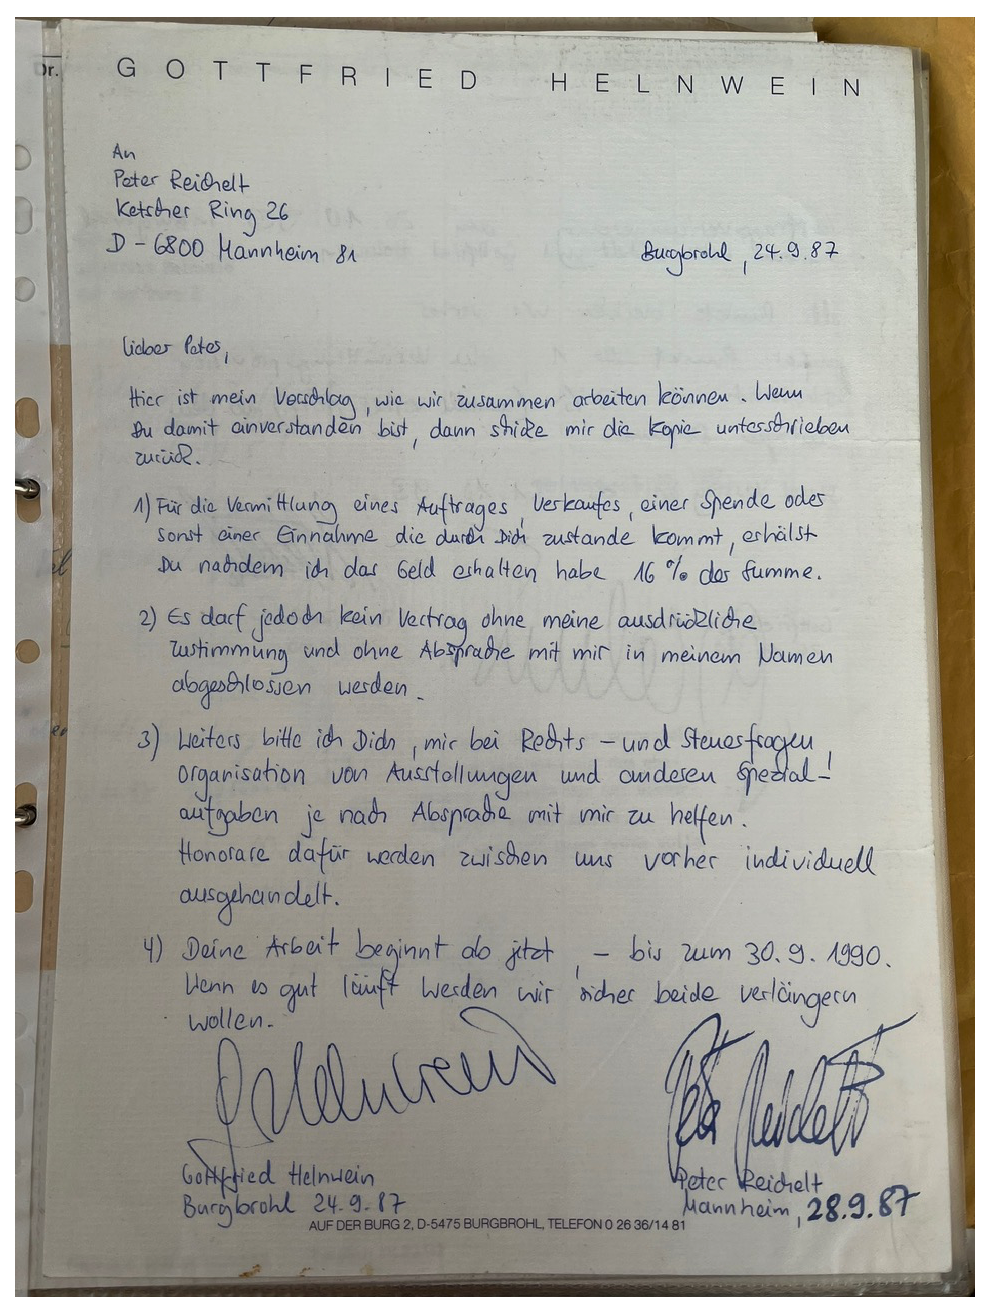 Dr.
GOTTFRIED HELNWEIN
An
Peter Reichelt
Ketscher Ring 26
D - 6800 Mannheim 81
Burgbrohl, 24.9.87
Lieber Peter,
Hier ist mein Vorschlag, wie wir zusammen arbeiten können. Wenn
Du damit einverstanden bist, dann schicke mir die Kopie unterschrieben
zurück.
1) Für die Vermittlung eines Auftrages, Verkaufes, einer Spende oder
sonst einer Einnahme die durch Dich zustande kommt, erhälst
Du nachdem ich das Geld erhalten habe 16 % der Summe.
2) Es darf jedoch kein Vertrag ohne meine ausdrückliche
Zustimmung und ohne Absprache mit mir in meinem Namen
abgeschlossen werden.
3) Weiters bitte ich Dich, mir bei Rechts - und Steuerfragen,
Organisation von Ausstellungen und anderen Spezial-
aufgaben je nach Absprache mit mir zu helfen.
Honorare dafür werden zwischen uns vorher individuell
ausgehandelt.
4) Deine Arbeit beginnt ab jetzt, - bis zum 30.9.1990.
Wenn es gut läuft werden wir sicher beide verlängern
wollen.
G. Helnwein
Peter Reichelt
Gottfried Helnwein
Peter Reichelt
Burgbrohl 24.9.87
Mannheim, 28.9.87
AUF DER BURG 2, D-5475 BURGBROHL, TELEFON 0 26 36/14 81